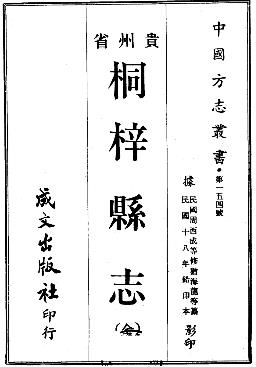 中國方志叢書·第一五四號
據民國周西成等修猶海龍等纂
民國十八年鉛印本影印
貴州省
桐梓縣志
(全)
成文出版社印行